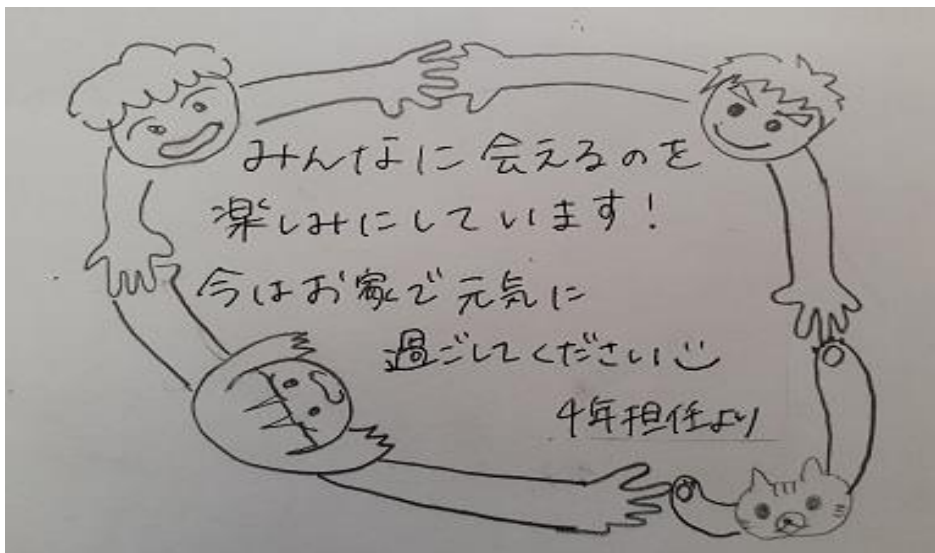 みんなに会えるのを
楽しみにしています!
今はお家で元気に
過ごしてください
4年担任より